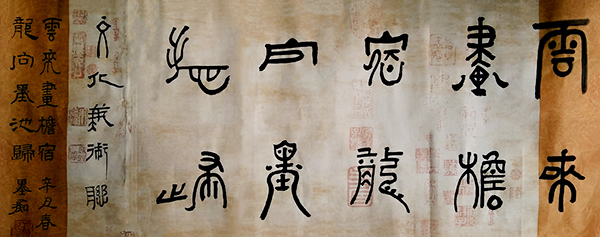 雲來
畫檐
宿龍
向墨
池歸
文化術聯
雲來畫檐宿 辛丑春
龍向墨池歸 墨痴